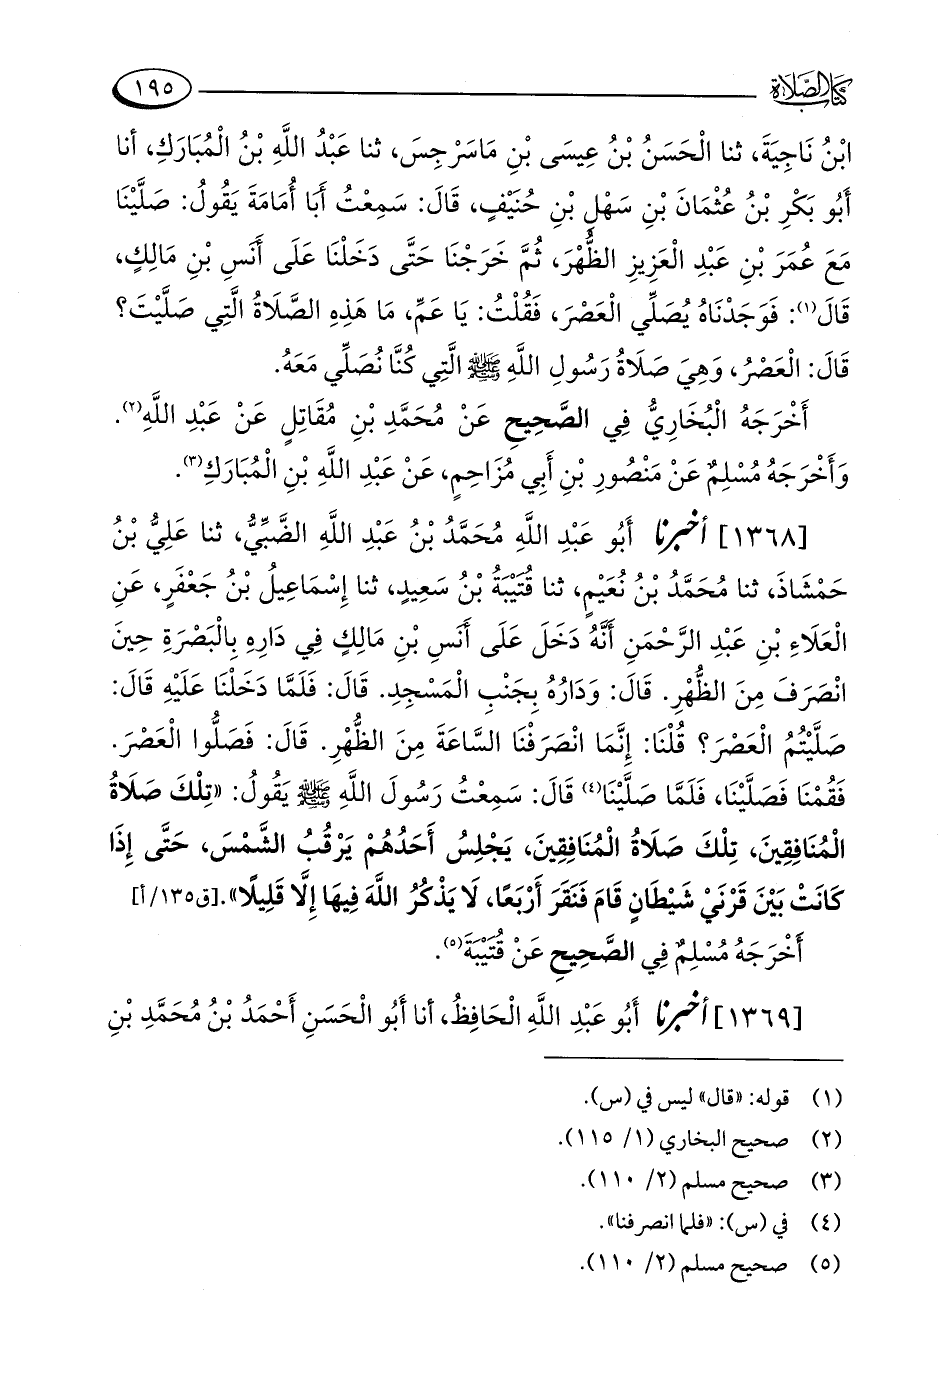 كتاب الصلاة
١٩٥
ابْنُ نَاجِيَةَ، ثنا الْحَسَنُ بْنُ عِيسَى بْنِ مَاسَرْجِسَ، ثنا عَبْدُ اللَّهِ بْنُ الْمُبَارَكِ، أنا
أَبُو بَكْرِ بْنُ عُثْمَانَ بْنِ سَهْلِ بْنِ حُنَيْفٍ، قَالَ: سَمِعْتُ أَبَا أُمَامَةَ يَقُولُ: صَلَّيْنَا
مَعَ عُمَرَ بْنِ عَبْدِ الْعَزِيزِ الظُّهْرَ، ثُمَّ خَرَجْنَا حَتَّى دَخَلْنَا عَلَى أَنَسِ بْنِ مَالِكٍ،
قَالَ(١): فَوَجَدْنَاهُ يُصَلِّي الْعَصْرَ، فَقُلْتُ: يَا عَمِّ، مَا هَذِهِ الصَّلَاةُ الَّتِي صَلَّيْتَ؟
قَالَ: الْعَصْرُ، وَهِيَ صَلَاةُ رَسُولِ اللَّهِ ﷺ الَّتِي كُنَّا نُصَلِّي مَعَهُ.
أَخْرَجَهُ الْبُخَارِيُّ فِي الصَّحِيحِ عَنْ مُحَمَّدِ بْنِ مُقَاتِلٍ عَنْ عَبْدِ اللَّهِ(٢).
وَأَخْرَجَهُ مُسْلِمٌ عَنْ مَنْصُورِ بْنِ أَبِي مُزَاحِمٍ، عَنْ عَبْدِ اللَّهِ بْنِ الْمُبَارَكِ(٣).
[١٣٦٨] أخبرنا أَبُو عَبْدِ اللَّهِ مُحَمَّدُ بْنُ عَبْدِ اللَّهِ الضَّبِّيُّ، ثنا عَلِيُّ بْنُ
حَمْشَاذَ، ثنا مُحَمَّدُ بْنُ نُعَيْمٍ، ثنا قُتَيْبَةُ بْنُ سَعِيدٍ، ثنا إِسْمَاعِيلُ بْنُ جَعْفَرٍ، عَنِ
الْعَلَاءِ بْنِ عَبْدِ الرَّحْمَنِ أَنَّهُ دَخَلَ عَلَى أَنَسِ بْنِ مَالِكٍ فِي دَارِهِ بِالْبَصْرَةِ حِينَ
انْصَرَفَ مِنَ الظُّهْرِ. قَالَ: وَدَارُهُ بِجَنْبِ الْمَسْجِدِ. قَالَ: فَلَمَّا دَخَلْنَا عَلَيْهِ قَالَ:
صَلَّيْتُمُ الْعَصْرَ؟ قُلْنَا: إِنَّمَا انْصَرَفْنَا السَّاعَةَ مِنَ الظُّهْرِ. قَالَ: فَصَلُّوا الْعَصْرَ.
فَقُمْنَا فَصَلَّيْنَا، فَلَمَّا صَلَّيْنَا(٤) قَالَ: سَمِعْتُ رَسُولَ اللَّهِ ﷺ يَقُولُ: «تِلْكَ صَلَاةُ
الْمُنَافِقِينَ، تِلْكَ صَلَاةُ الْمُنَافِقِينَ، يَجْلِسُ أَحَدُهُمْ يَرْقُبُ الشَّمْسَ، حَتَّى إِذَا
كَانَتْ بَيْنَ قَرْنَيْ شَيْطَانٍ قَامَ فَنَقَرَ أَرْبَعًا، لَا يَذْكُرُ اللَّهَ فِيهَا إِلَّا قَلِيلًا».[ق١٣٥/أ]
أَخْرَجَهُ مُسْلِمٌ فِي الصَّحِيحِ عَنْ قُتَيْبَةَ(٥).
[١٣٦٩] أخبرنا أَبُو عَبْدِ اللَّهِ الْحَافِظُ، أنا أَبُو الْحَسَنِ أَحْمَدُ بْنُ مُحَمَّدِ بْنِ
(١) قوله: «قال» ليس في (س).
(٢) صحيح البخاري (١/ ١١٥).
(٣) صحيح مسلم (٢/ ١١٠).
(٤) في (س): «فلما انصرفنا».
(٥) صحيح مسلم (٢/ ١١٠).